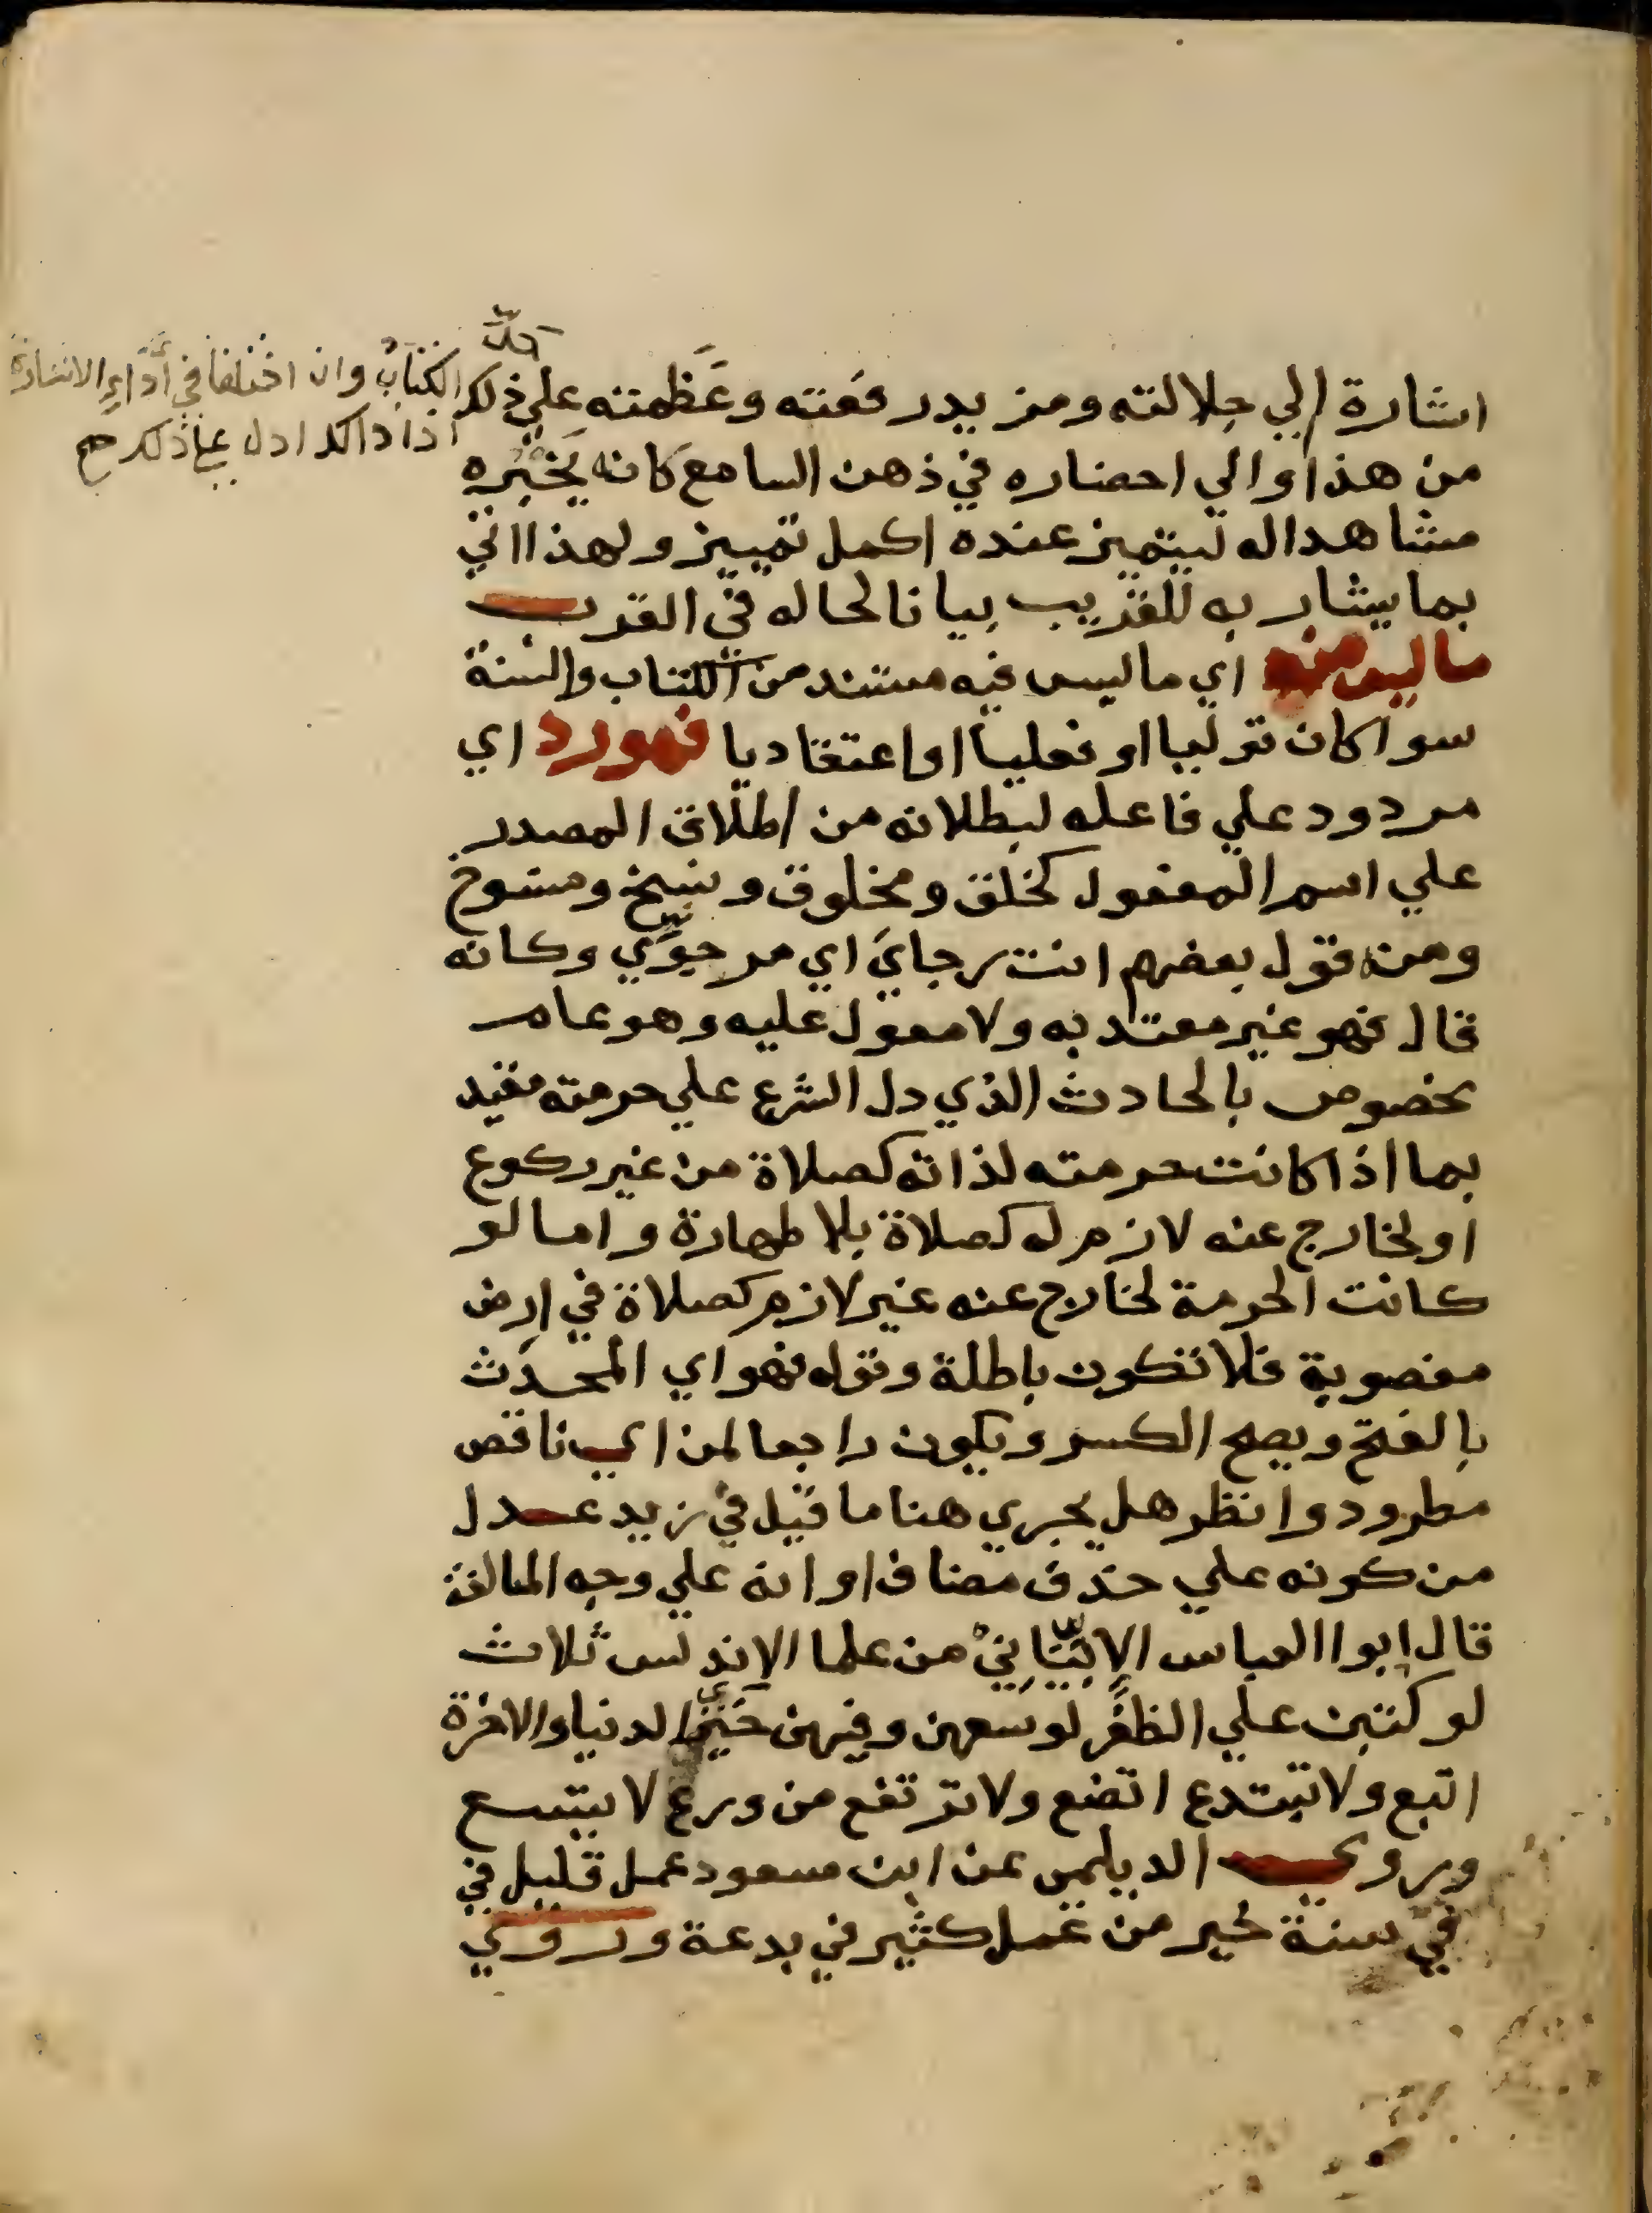 اشارة الي جلالته ومزيد رفعته وعظمته علي ذلك
الكتاب وان اختلفا في أداء الاشارة
اذ ذاك ادل علي ذلك صح
من هذا والي احضاره في ذهن السامع كانه يخبره
مشاهدا له ليتميز عنده اكمل تمييز ولهذا اتي
بما يشار به للقريب بيانا لحاله في القرب
ما ليس منه اي ما ليس فيه مستند من الكتاب والسنة
سوا كان قوليا او فعليا او اعتقاديا فهو رد اي
مردود علي فاعله لبطلانه من اطلاق المصدر
علي اسم المفعول كخلق ومخلوق ونسخ ومنسوخ
ومنه قول بعضهم انت رجاي اي مرجوي وكانه
قال فهو غير معتد به ولا معول عليه وهو عام
مخصوص بالحادث الذي دل الشرع علي حرمته مقيد
بما اذا كانت حرمته لذاته كصلاة من غير ركوع
او لخارج عنه لازم له كصلاة بلا طهارة واما لو
كانت الحرمة لخارج عنه غير لازم كصلاة في ارض
مغصوبة فلا تكون باطلة وقوله فهو اي المحدث
بالفتح ويصح الكسر ويكون راجعا لمن اي ناقص
مطرود وانظر هل يجري هنا ما قيل في زيد عدل
من كونه علي حذف مضاف او انه علي وجه المبالغة
قال ابوا العباس الابياني من علما الاندلس ثلاث
لو كتبن علي الظفر لوسعهن وفيهن خير الدنيا والاخرة
اتبع ولا تبتدع اتضع ولا ترتفع من ورع لا يتسع
وروي الديلمي عن ابن مسعود عمل قليل في
في سنة خير من عمل كثير في بدعة وروي